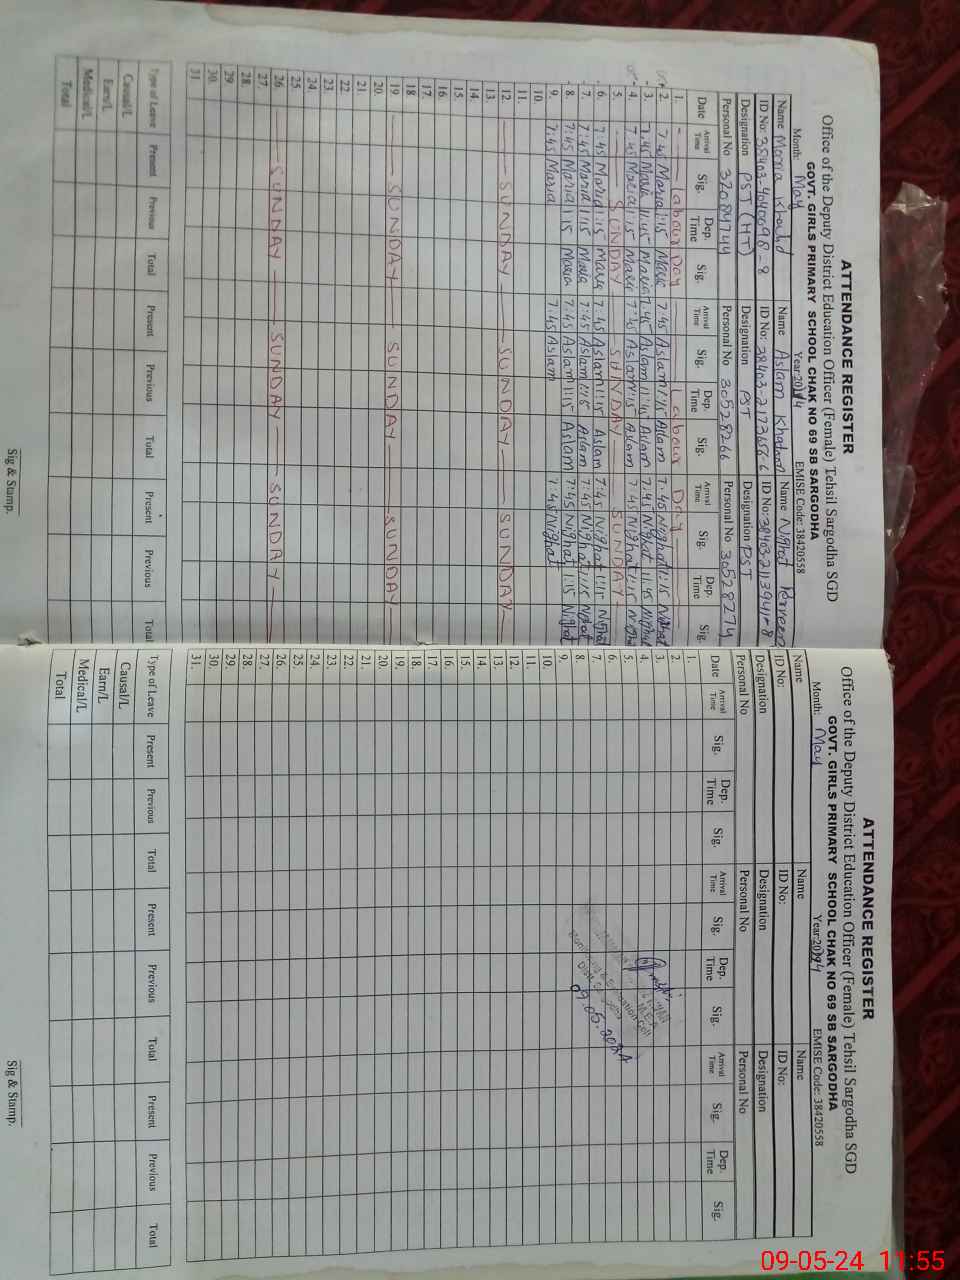 ATTENDANCE REGISTER
Office of the Deputy District Education Officer (Female) Tehsil Sargodha SGD
GOVT. GIRLS PRIMARY SCHOOL CHAK NO 69 SB SARGODHA
Month: May Year 2024 EMISE Code: 38420558
Name Maria Khalid Name Aslam Khatoon Name Nighat Perveen
ID No: 38403-4040098-8 ID No: 38403-2173656-6 ID No: 38403-2113941-8
Designation PST (HT) Designation PST Designation PST
Personal No 32084744 Personal No 30528266 Personal No 30528274
Date Arrival Time Sig. Dep. Time Sig. Arrival Time Sig. Dep. Time Sig. Arrival Time Sig. Dep. Time Sig.
1. Labour Day Labour Day
2. 7:45 Maria 1:15 Maria 7:45 Aslam 1:15 Aslam 7:45 Nighat 1:15 Nighat
3. 7:45 Maria 11:45 Maria 7:45 Aslam 11:45 Aslam 7:45 Nighat 11:45 Nighat
4. 7:45 Maria 1:15 Maria 7:45 Aslam 1:15 Aslam 7:45 Nighat 1:15 Nighat
5. SUNDAY SUNDAY SUNDAY
6. 7:45 Maria 1:15 Maria 7:45 Aslam 1:15 Aslam 7:45 Nighat 1:15 Nighat
7. 7:45 Maria 1:15 Maria 7:45 Aslam 1:15 Aslam 7:45 Nighat 1:15 Nighat
8. 7:45 Maria 1:15 Maria 7:45 Aslam 1:15 Aslam 7:45 Nighat 1:15 Nighat
9. 7:45 Maria 7:45 Aslam 7:45 Nighat
10.
11.
12. SUNDAY SUNDAY SUNDAY
13.
14.
15.
16.
17.
18.
19. SUNDAY SUNDAY SUNDAY
20.
21.
22.
23.
24.
25.
26. SUNDAY SUNDAY SUNDAY
27.
28.
29.
30.
31.
Type of Leave Present Previous Total Present Previous Total Present Previous Total
Causal/L
Earn/L
Medical/L
Total
Sig & Stamp.
ATTENDANCE REGISTER
Office of the Deputy District Education Officer (Female) Tehsil Sargodha SGD
GOVT. GIRLS PRIMARY SCHOOL CHAK NO 69 SB SARGODHA
Month: May Year 2024 EMISE Code: 38420558
Name Name Name
ID No: ID No: ID No:
Designation Designation Designation
Personal No Personal No Personal No
Date Arrival Time Sig. Dep. Time Sig. Arrival Time Sig. Dep. Time Sig. Arrival Time Sig. Dep. Time Sig.
1.
2.
3.
4.
5.
6.
7.
8.
9.
10.
11.
12.
13.
14.
15.
16.
17.
18.
19.
20.
21.
22.
23.
24.
25.
26.
27.
28.
29.
30.
31.
M.E.A
Monitoring & Evaluation Cell
Distt. Sargodha
09.05.2024
Type of Leave Present Previous Total Present Previous Total Present Previous Total
Causal/L
Earn/L
Medical/L
Total
Sig & Stamp.
09-05-24 11:55